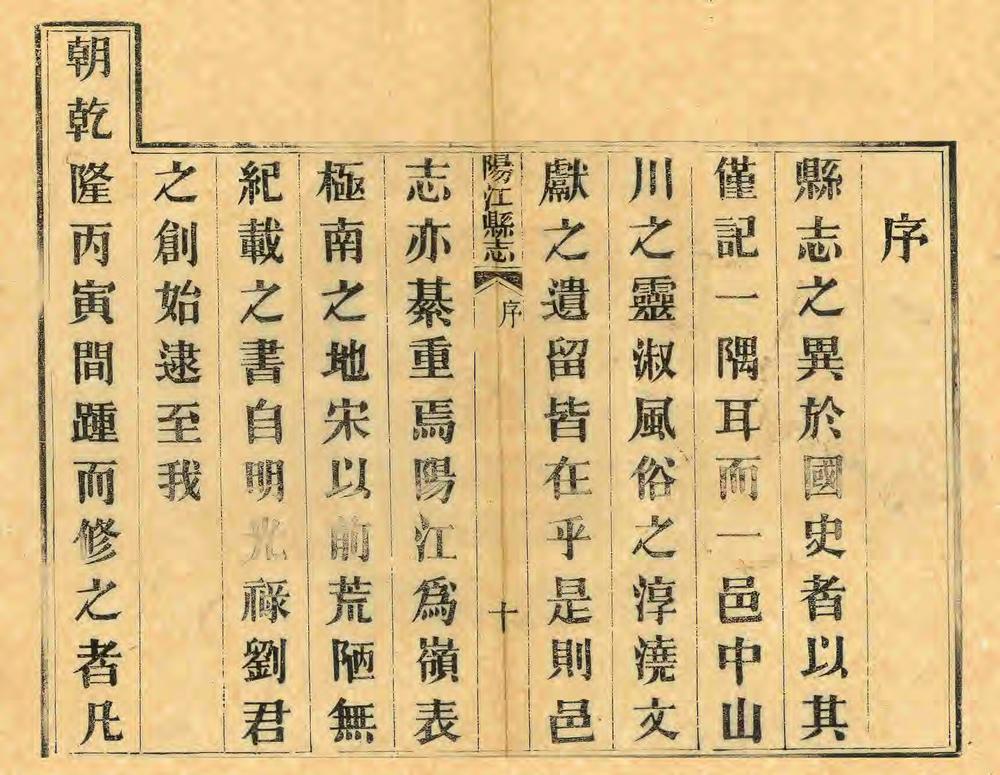 序
縣志之異於國史者以其
僅記一隅耳而一邑中山
川之靈淑風俗之淳澆文
獻之遺留皆在乎是則邑
陽江縣志
序
十
志亦綦重焉陽江爲嶺表
極南之地宋以前荒陋無
紀載之書自明光祿劉君
之創始逮至我
朝乾隆丙寅間踵而修之者凡